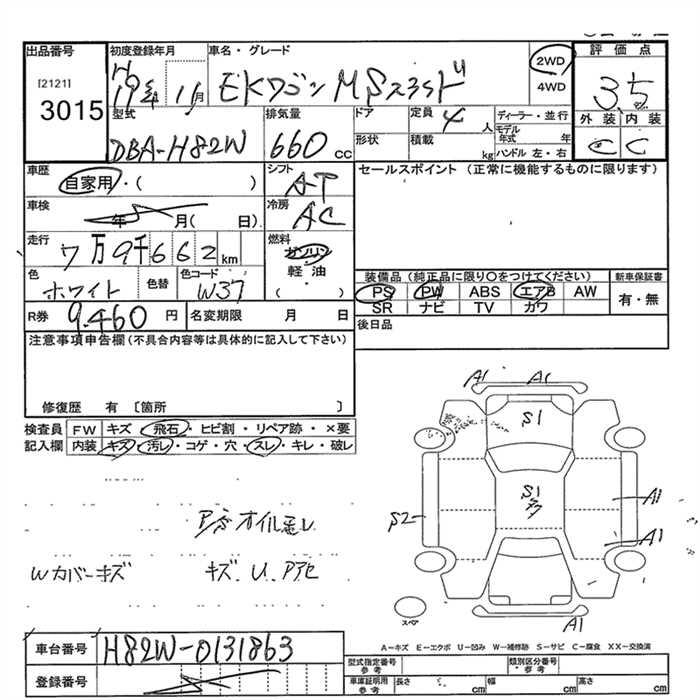 出品番号 初度登録年月 車名・グレード 評価点
[2121] H19年 11月 EKワゴン MSスライド 2WD 3.5
3015 4WD 外装 内装
型式 排気量 ドア 定員 4人 ディーラー・並行 C C
DBA-H82W 660cc 形状 積載 kg モデル年式 年 ハンドル 左・右
車歴 シフト セールスポイント (正常に機能するものに限ります)
自家用・( ) AT
車検 冷房
年 月( 日) AC
走行 燃料
7万9千662km ガソリン
色 色替 色コード 軽油 装備品(純正品に限り〇をつけてください) 新車保証書
ホワイト W37 ( ) PS PW ABS エアB AW 有・無
SR ナビ TV カワ
R券 9.460円 名変期限 月 日 後日品
注意事項申告欄(不具合内容等は具体的に記入して下さい)
修復歴 有 〔箇所 〕
検査員 FW キズ・飛石・ヒビ割・リペア跡・×要
記入欄 内装 キズ・汚レ・コゲ・穴・スレ・キレ・破レ
A1 A1
S1
S1
A1
S2
A1
P/Sオイル走レ
Wカバーキズ キズ.U.アセ
スペア
A1
A-キズ E-エクボ U-凹み W-補修跡 S-サビ C-腐食 XX-交換済
車台番号 H82W-0131863
型式指定番号 参考 類別区分番号 参考
登録番号
車庫証明用 参考 長さ cm 幅 cm 高さ cm